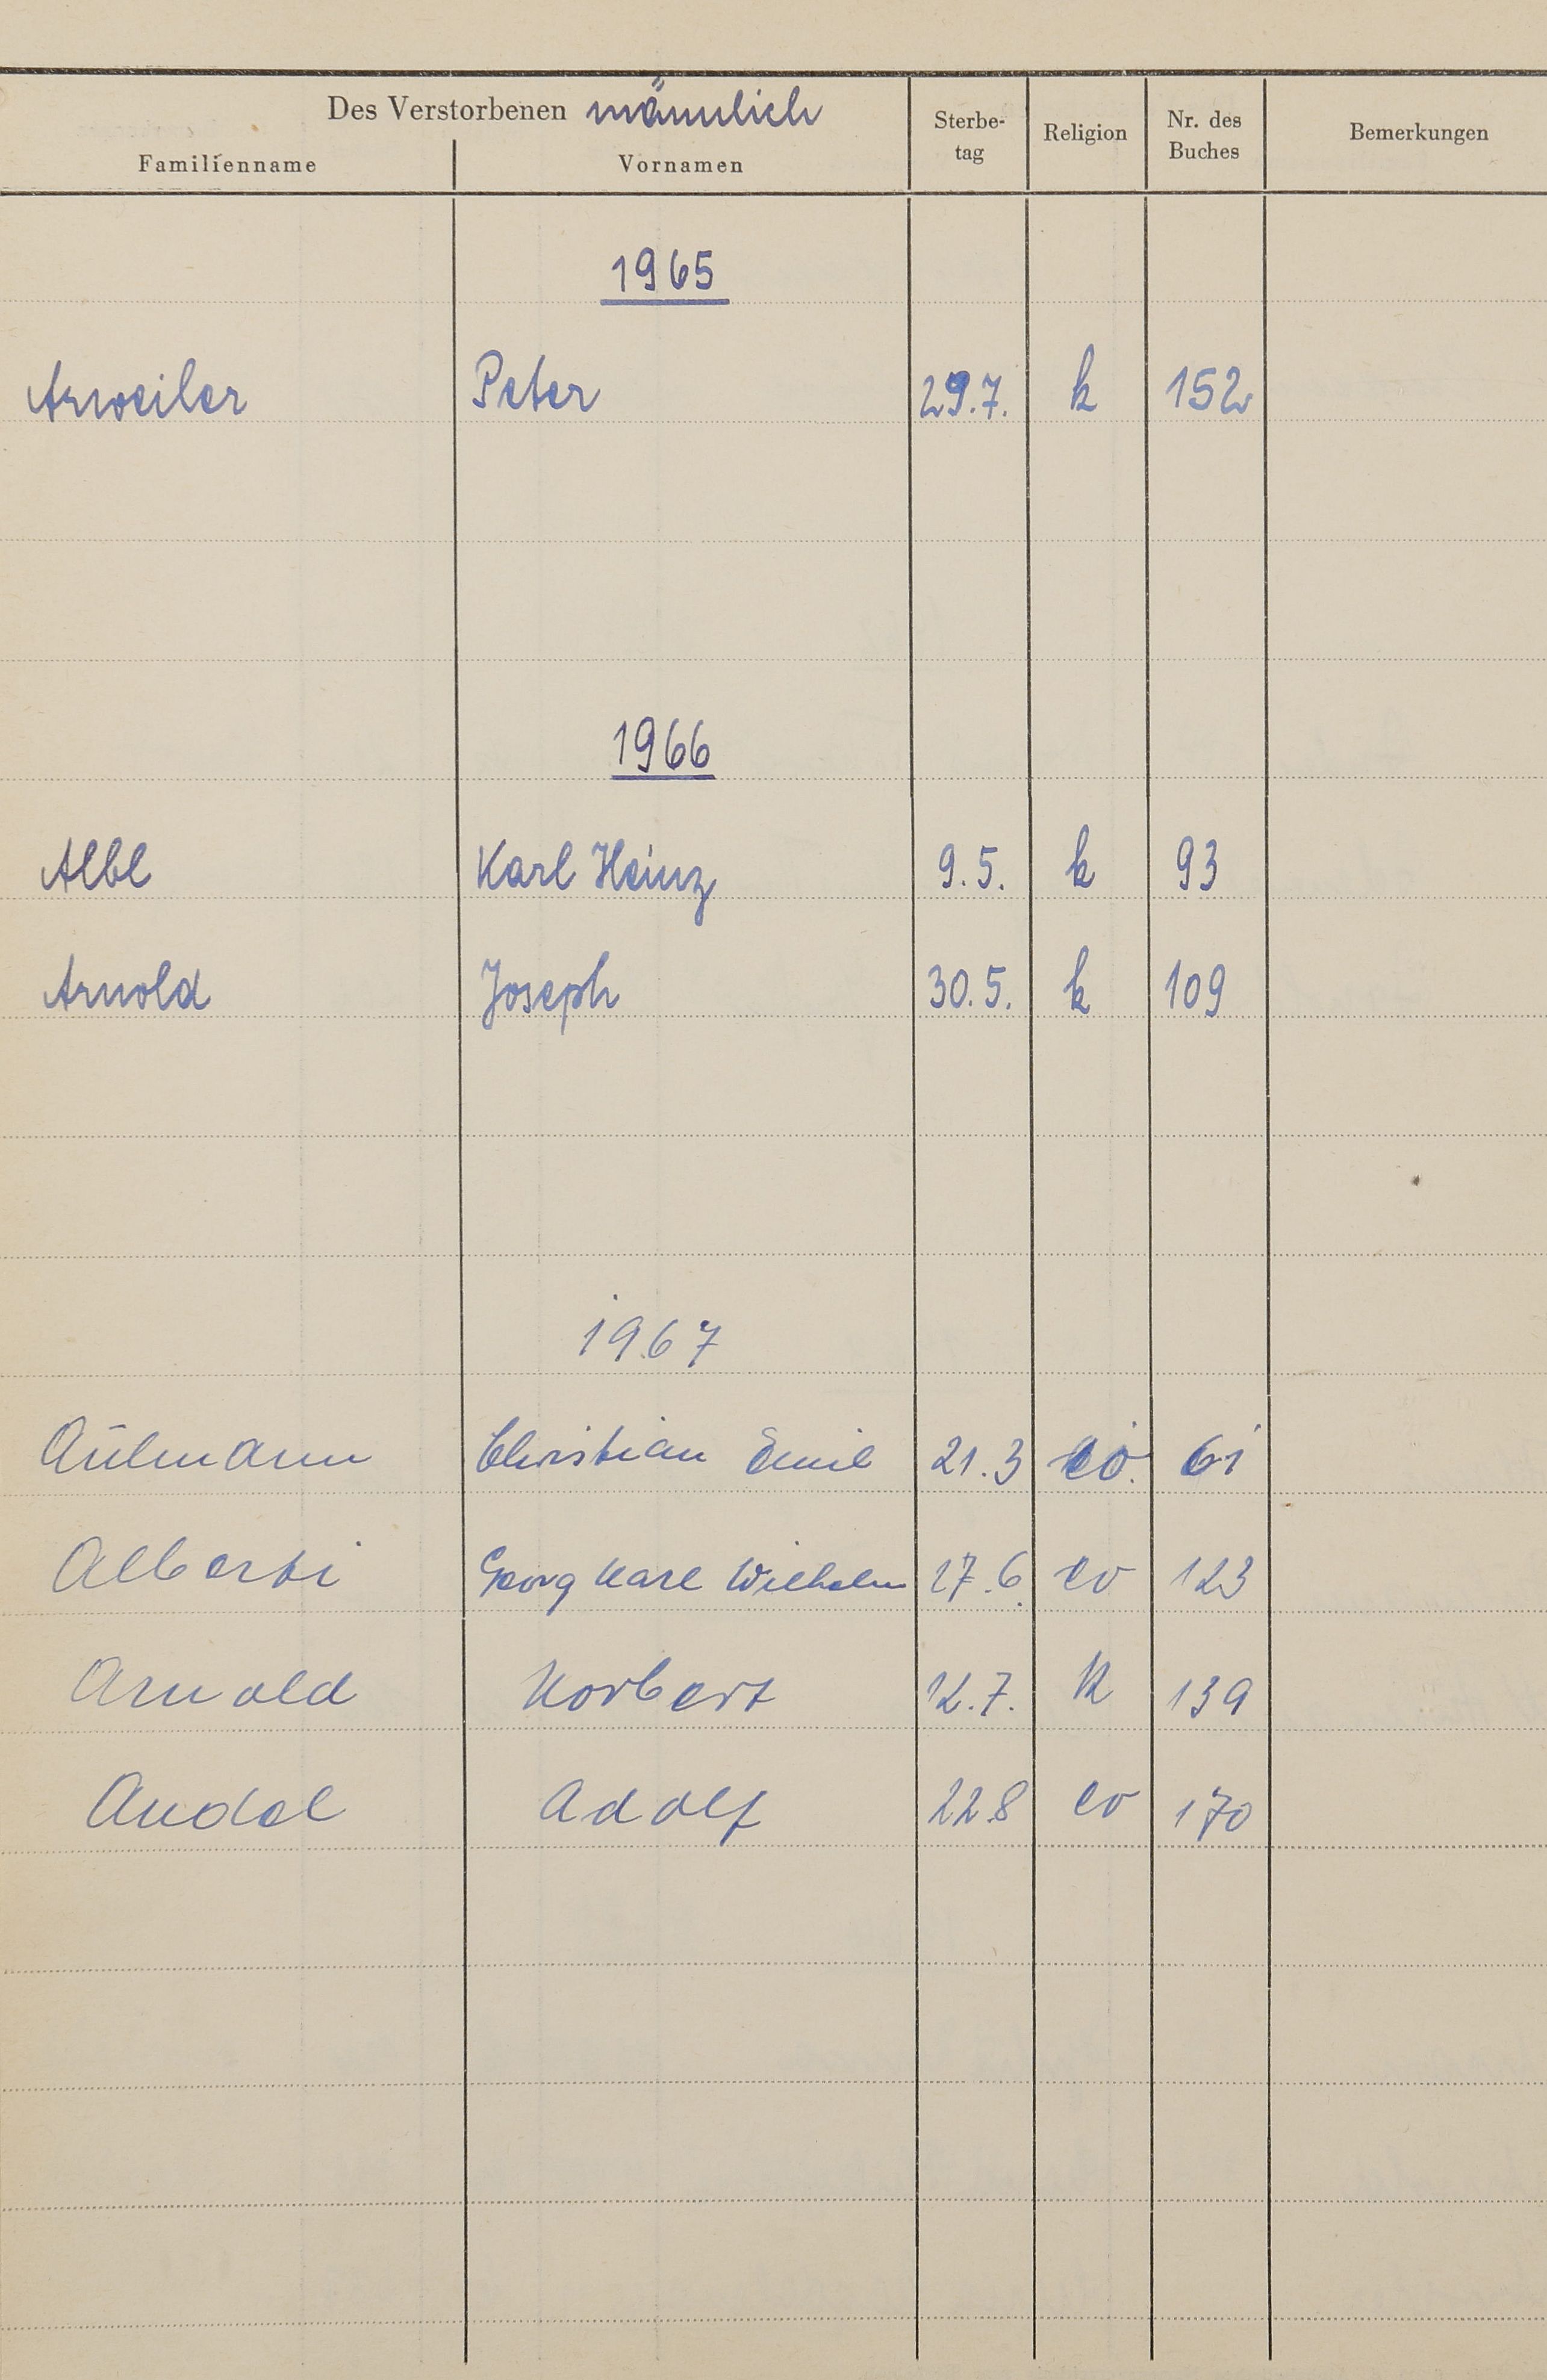 Des Verstorbenen männlich
Familienname Vornamen Sterbe-tag Religion Nr. des Buches Bemerkungen
1965
Arweiler Peter 29.7. k 152
1966
Albl Karl Heinz 9.5. k 93
Arnold Joseph 30.5. k 109
1967
Aulmann Christian Emil 21.3 ev. 61
Alberti Georg Karl Wilhelm 17.6. ev 123
Arnold Norbert 12.7. K 139
Andel Adolf 22.8 ev 170